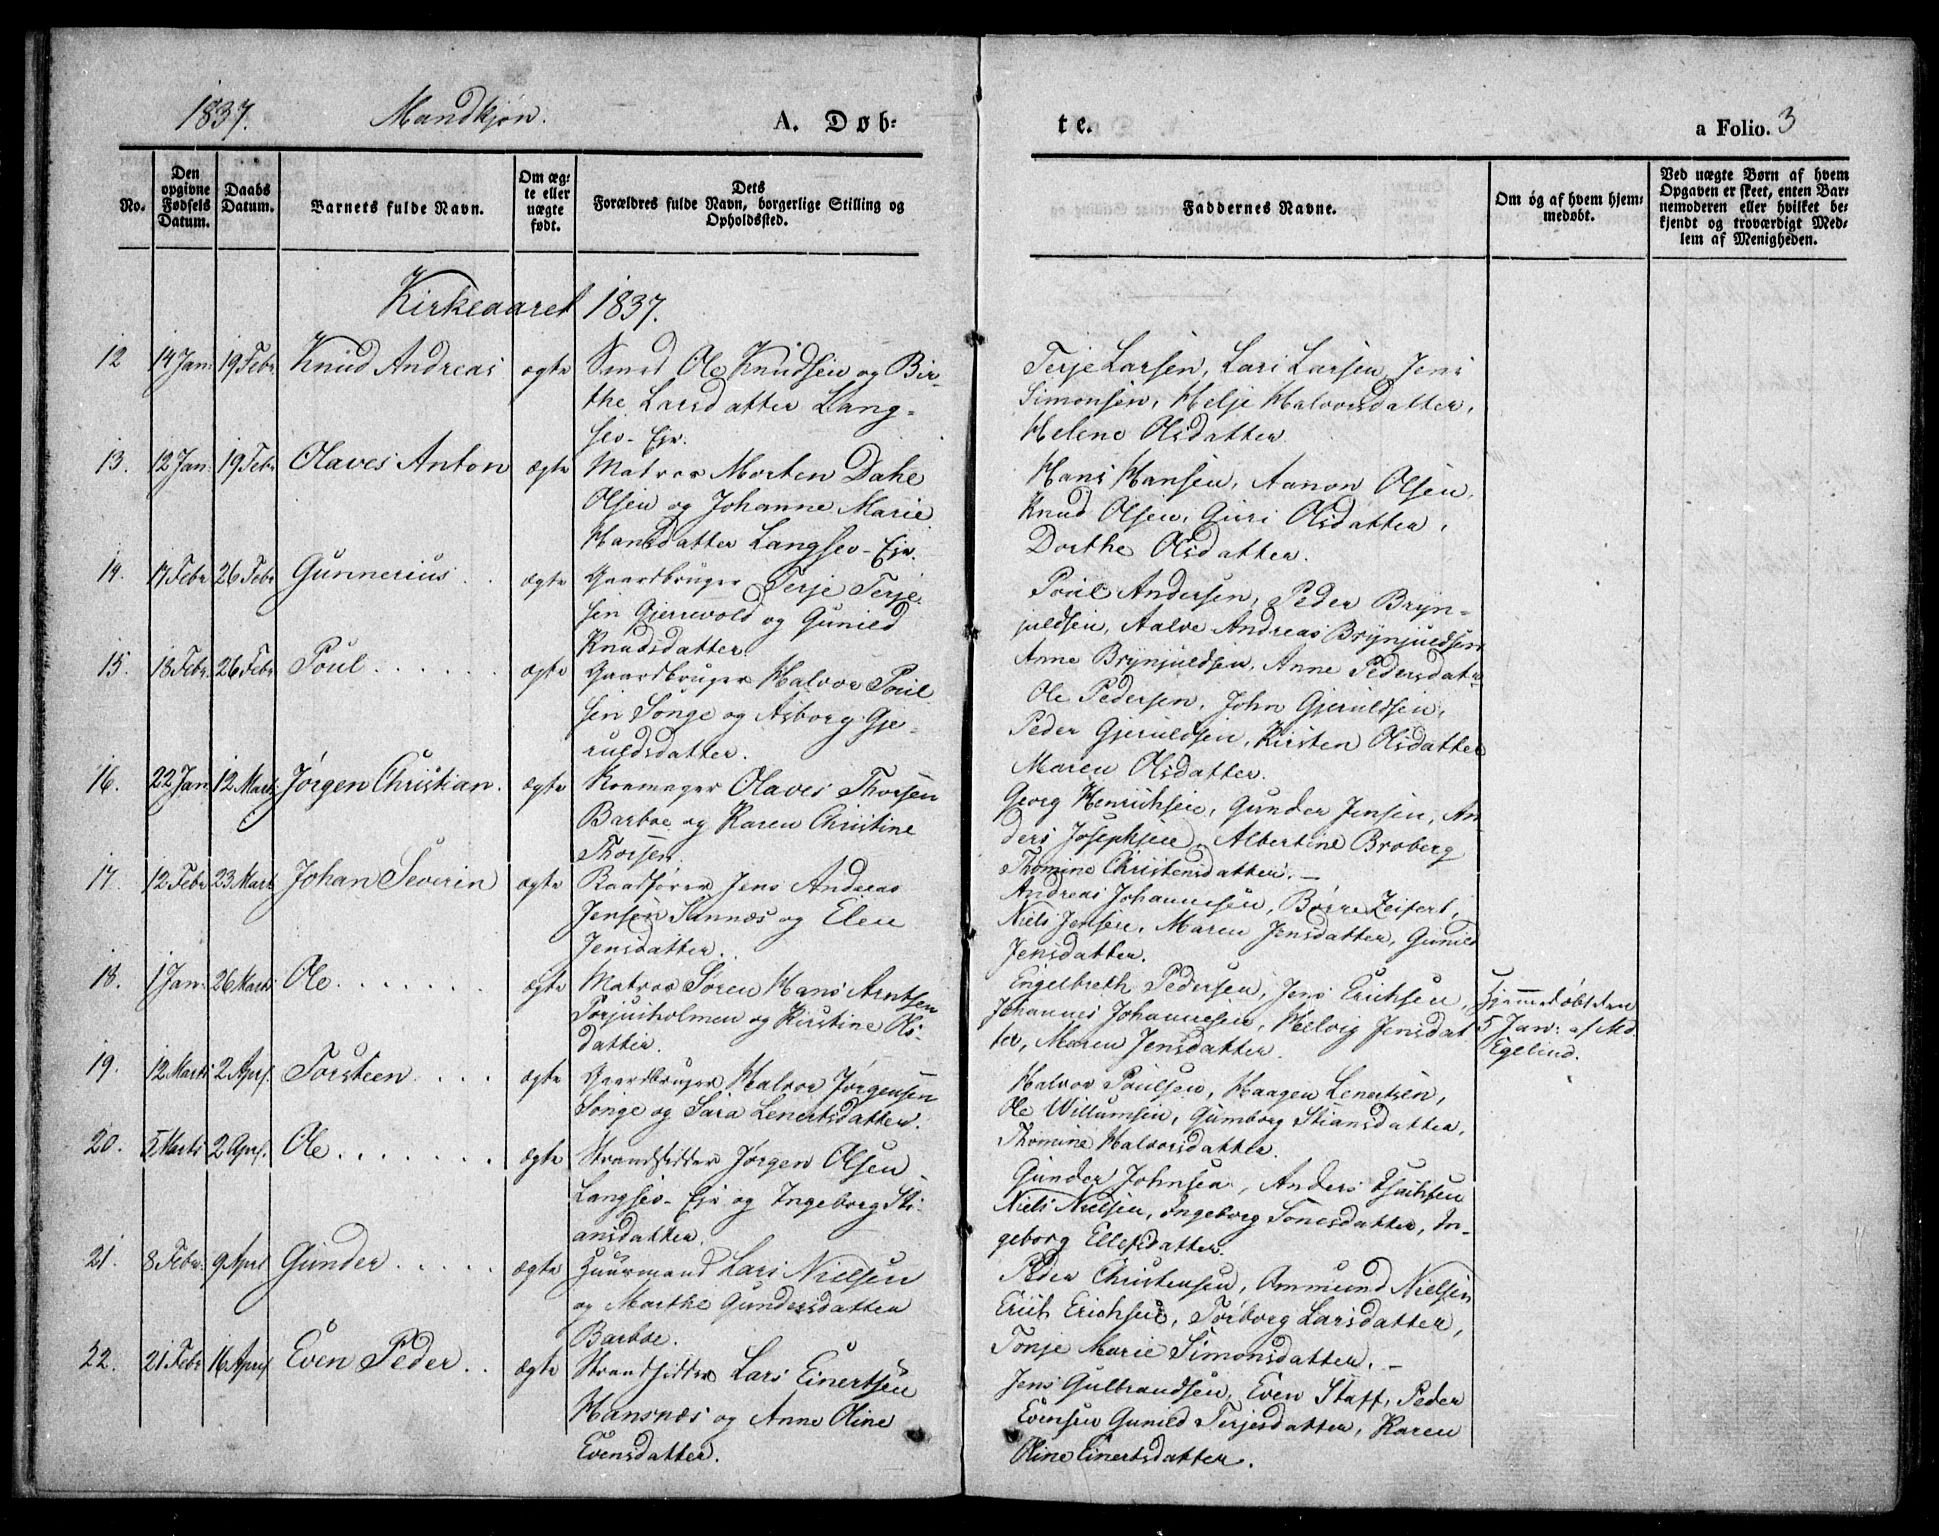 1837. Mandkjøn. A. Døb- te. a Folio. 3
No. Den opgivne Fødsels Datum. Daabs Datum. Barnets fulde Navn. Om ægte eller uægte født. Dets Forældres fulde Navn, borgerlige Stilling og Opholdssted. Faddernes Navne. Om og af hvem hjemmedøbt. Ved uægte Børn af hvem Opgaven er skeet, enten Barnemoderen eller hvilket bekjendt og troværdigt Medlem af Menigheden.
Kirkeaaret 1837.
12 14 Jan: 19 Febr. Knud Andreas ægte Smed Ole Knudsen og Bir-
the Larsdatter Lang-
sev-Ejr.
Terje Larsen, Lars Larsen, Jens
Simonsen, Helje Halvorsdatter,
Helene Olsdatter.
13. 12 Jan: 19 Febr. Olaves Anton ægte Matros Morten Dahe
Olsen og Johanne Marie
Hansdatter Langsev-Ejr.
Hans Hansen, Aanon Olsen,
Knud Olsen, Guri Olsdatter,
Dorthe Olsdatter.
14. 17 Febr 26 Febr Gunnerius . . ægte Gaardbruger Terje Terje-
sen Gjerrevold og Gunild
Knudsdatter
Poul Andersen, Peder Bryn-
juldsen, Aalve Andreas Brynjuldsen
Anne Brynjuldsen, Anne Pedersdatr
15. 18 Febr. 26 Febr. Poul . . . . . ægte Gaardbruger Halvor Poul
sen Songe og Asborg Gje-
ruldsdatter.
Ole Pedersen, John Gjeruldsen,
Peder Gjeruldsen, Kirsten Olsdatter
Maren Olsdatter.
16. 22 Jan 12 Marts Jørgen Christian. ægte Kramager Olaves Thorsen
Barboe og Karen Christine
Thorsen.
Georg Henrichsen, Gunder Jensen, An
ders Josephsen, Albertine Broberg
Thomine Christensdatter. —
17. 12 Febr 23 Mart Johan Severin ægte Baadfører Jens Andreas
Jensen Sannæs og Elen
Jensdatter.
Andreas Johannesen, Børre Zeifert,
Niels Jensen, Maren Jensdatter, Gunild
Jensdatter.
18. 1 Jan: 26 Marts Ole . . . . . . . ægte Matros Søren Hans Arntsen
Torjusholmen og Kirstine Ols-
datter.
Engelbreth Pedersen, Jens Erichsen,
Johannes Johannesen, Helvig Jensdat
ter, Maren Jensdatter.
Hjemmedøbt den
5 Jan: af Md
Egelund.
19. 12 Marts 2 Apr. Torsteen . . . . ægte Gaardbruger Halvor Jørgensen
Songe og Sara Lenertsdatter.
Halvor Poulsen, Haagen Lenertsen,
Ole Willumsen, Gumborg Stiansdatter,
Thomine Halvorsdatter.
20. 5 Marts 2 Apr. Ole . . . . . . . ægte Strandsidder Jørgen Olsen
Langsev-Ejr og Ingeborg Sti
ansdatter.
Gunder Johnsen, Anders Isachsen
Niels Nielsen, Ingeborg Tonesdatter, In-
geborg Ellefsdatter.
21. 8 Febr. 9 Aprl Gunder . . . . . ægte Huusmand Lars Nielsen
og Marthe Gundersdatter
Barboe.
Peder Christensen, Ammund Nielsen
Erich Erichsen, Torborg Larsdatter,
Tonje Marie Simonsdatter. —
22. 21 Febr 16 Aprl Even Peder . . ægte Strandsidder Lars Einertsen
Hansnæs og Anne Oline
Evensdatter.
Jens Gulbrandsen, Even Staff, Peder
Evensen Gunild Terjesdatter, Karen
Oline Einertsdatter.